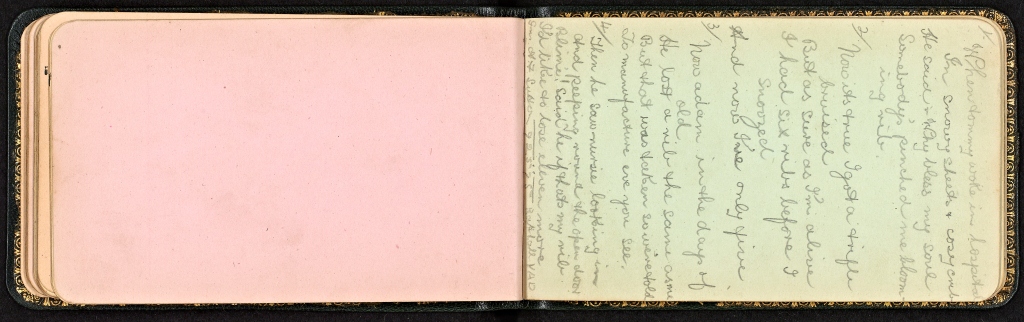 1/ When tommy woke in hospital
In snowy sheets & cosy cub
He said "Why bless my soul
Somebody's pinched me bloom-
ing rib.
2/ Now its true I got a trifle
bruised
But as sure as I'm alive
I had six ribs before I
snoozed
And now I've only five.
3/ Now adam in the days of
old
He lost a rib the same as me
But that was taken so we're told
To manufacture eve you see.
4/ Then he saw nursie looking in
And peeping round the open door
Blime! said he if thats my rib
I'd like to lose eleven more